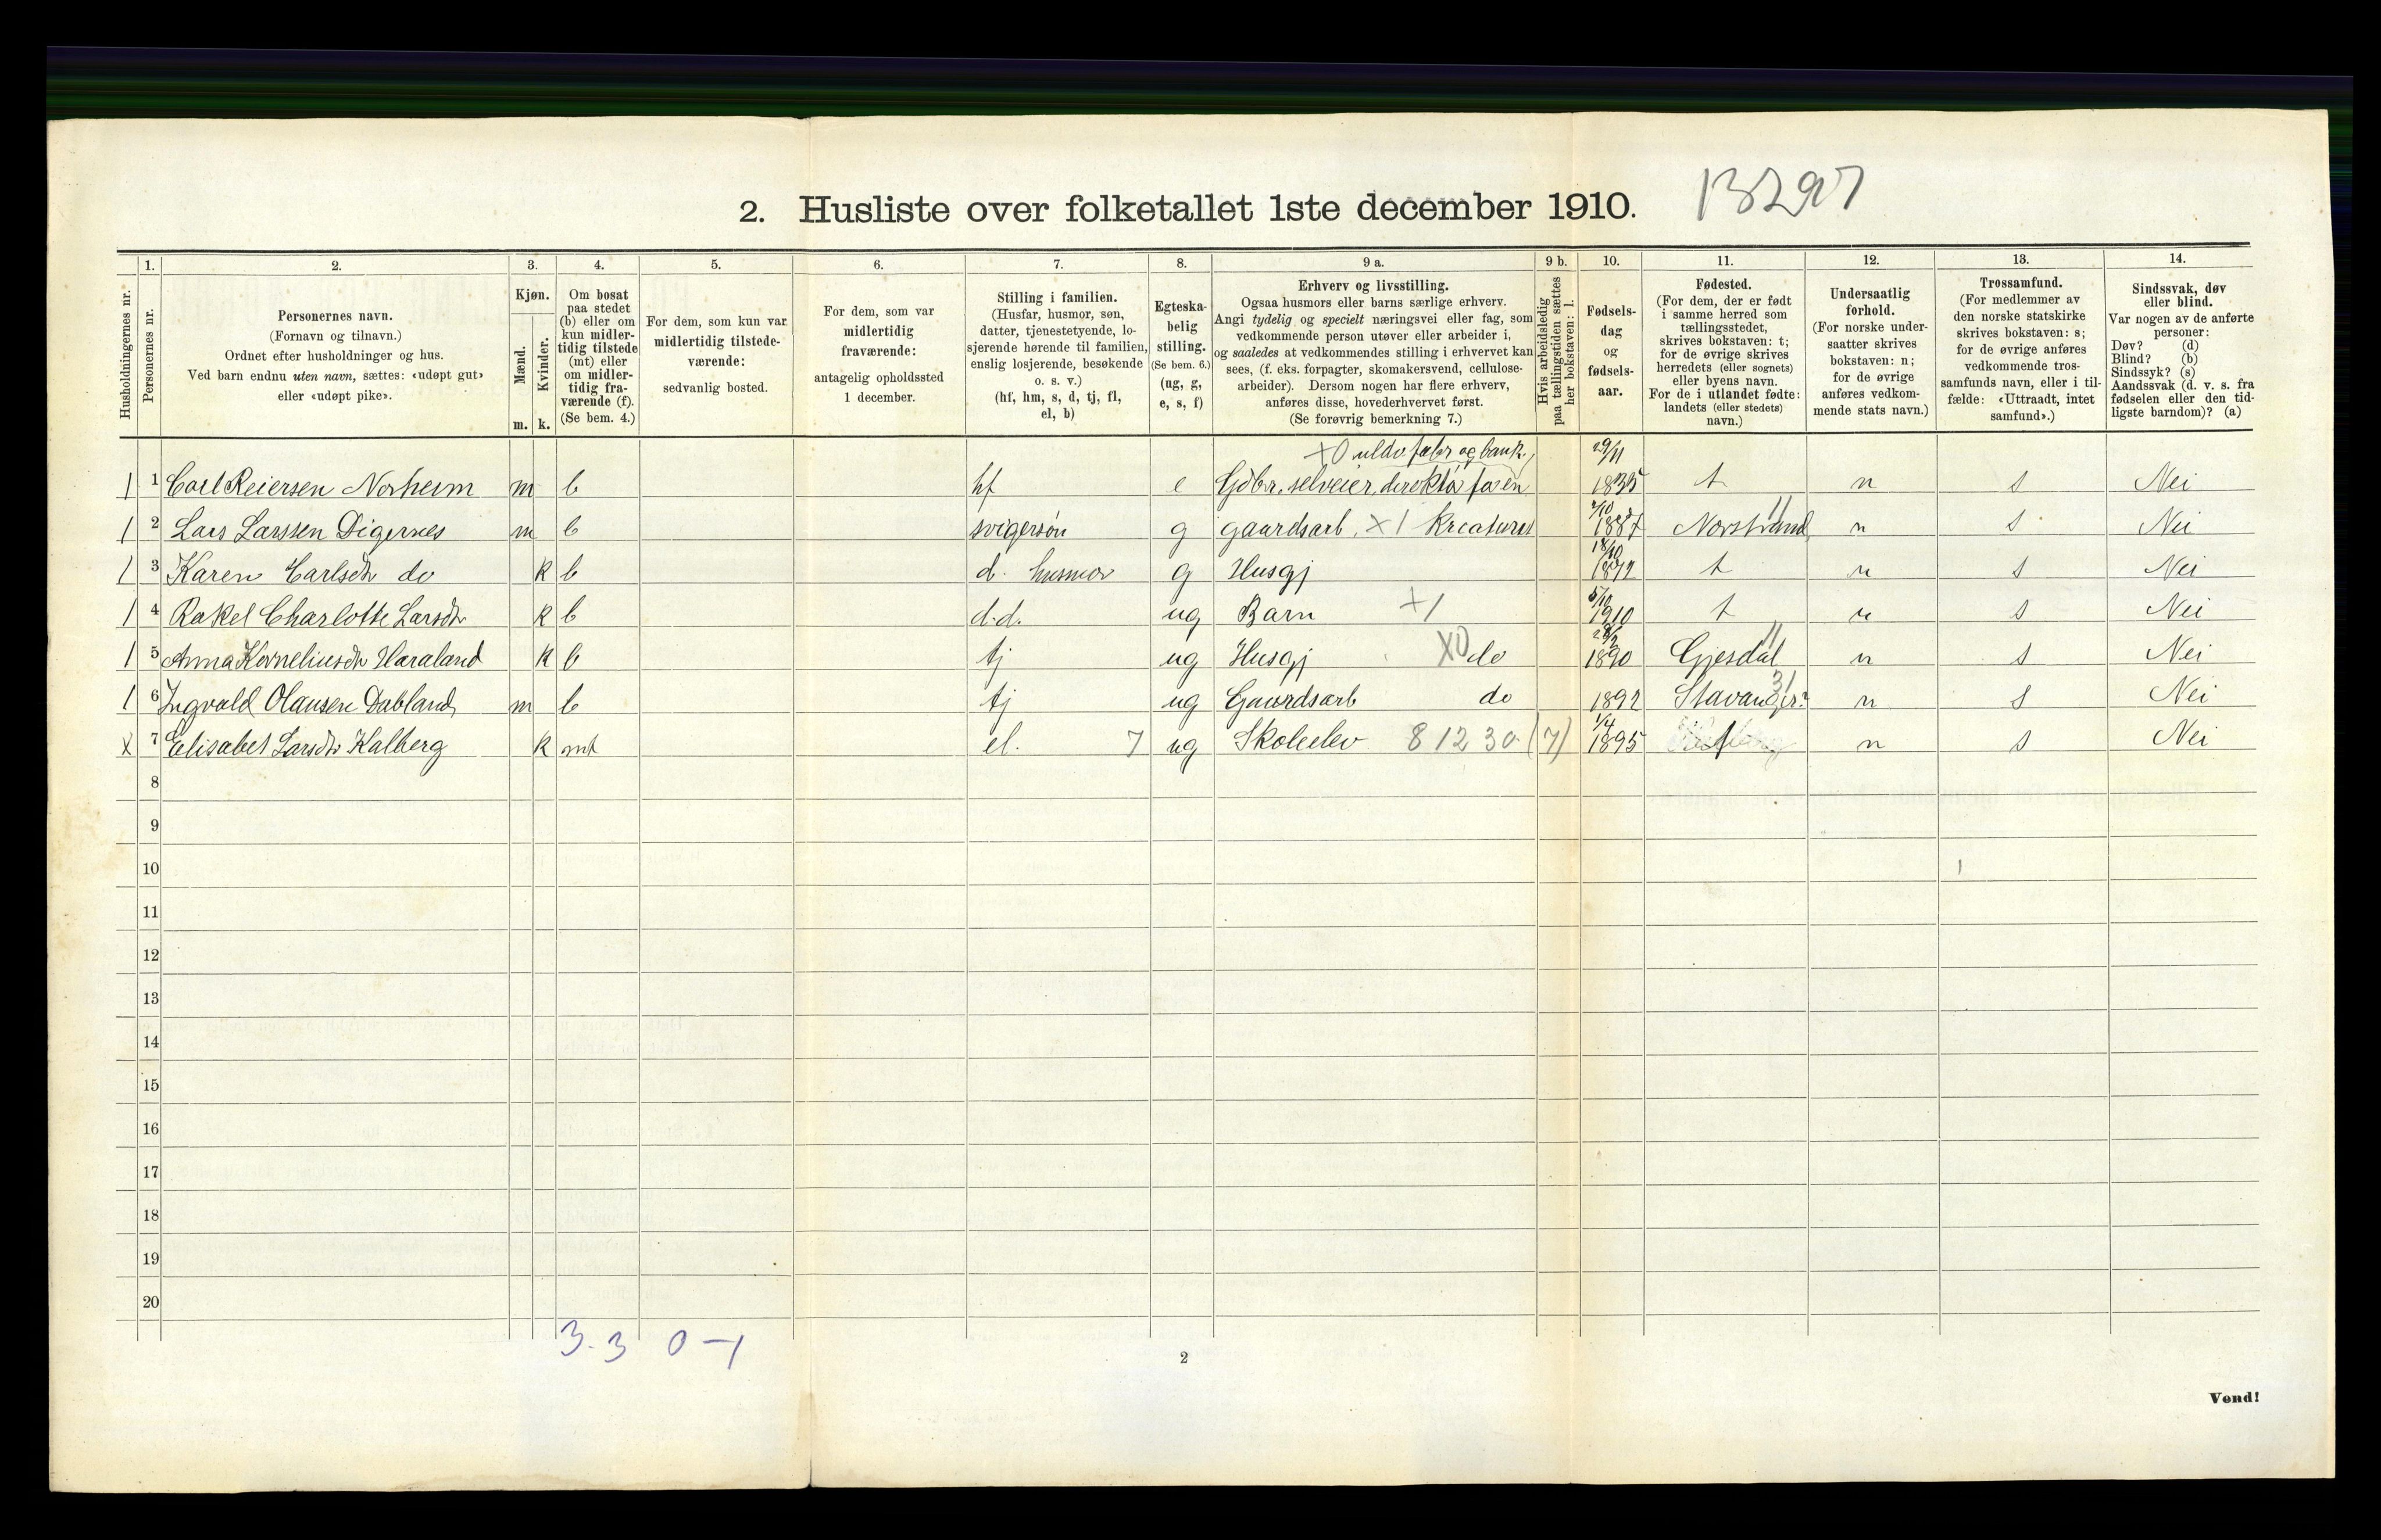 2. Husliste over folketallet 1ste december 1910. 13297
Husholdningernes nr.
1. Personernes nr.
2. Personernes navn.
(Fornavn og tilnavn.)
Ordnet efter husholdninger og hus.
Ved barn endnu uten navn, sættes: «udøpt gut»
eller «udøpt pike».
3. Kjøn.
Mænd. m.
Kvinder. k.
4. Om bosat
paa stedet
(b) eller om
kun midler-
tidig tilstede
(mt) eller
om midler-
tidig fra-
værende (f).
(Se bem. 4.)
5. For dem, som kun var
midlertidig tilstede-
værende:
sedvanlig bosted.
6. For dem, som var
midlertidig
fraværende:
antagelig opholdssted
1 december.
7. Stilling i familien.
(Husfar, husmor, søn,
datter, tjenestetyende, lo-
sjerende hørende til familien,
enslig losjerende, besøkende
o. s. v.)
(hf, hm, s, d, tj, fl,
el, b)
8. Egteska-
belig
stilling.
(Se bem. 6.)
(ug, g,
e, s, f)
9 a. Erhverv og livsstilling.
Ogsaa husmors eller barns særlige erhverv.
Angi tydelig og specielt næringsvei eller fag, som
vedkommende person utøver eller arbeider i,
og saaledes at vedkommendes stilling i erhvervet kan
sees, (f. eks. forpagter, skomakersvend, cellulose-
arbeider). Dersom nogen har flere erhverv,
anføres disse, hovederhvervet først.
(Se forøvrig bemerkning 7.)
9 b. Hvis arbeidsledig
paa tællingstiden sættes
her bokstaven: l.
10. Fødsels-
dag
og
fødsels-
aar.
11. Fødested.
(For dem, der er født
i samme herred som
tællingsstedet,
skrives bokstaven: t;
for de øvrige skrives
herredets (eller sognets)
eller byens navn.
For de i utlandet fødte:
landets (eller stedets)
navn.)
12. Undersaatlig
forhold.
(For norske under-
saatter skrives
bokstaven: n;
for de øvrige
anføres vedkom-
mende stats navn.)
13. Trossamfund.
(For medlemmer av
den norske statskirke
skrives bokstaven: s;
for de øvrige anføres
vedkommende tros-
samfunds navn, eller i til-
fælde: «Uttraadt, intet
samfund».)
14. Sindssvak, døv
eller blind.
Var nogen av de anførte
personer:
Døv? (d)
Blind? (b)
Sindssyk? (s)
Aandssvak (d. v. s. fra
fødselen eller den tid-
ligste barndom)? (a)
X0 uldv.fabr og bank, 29/11
1 1 Carl Reiersen Norheim m b hf e Gdbr. selveier, direktør for en 1835 t n s Nei
1 2 Lars Larssen Digernes m b svigersøn g gaardsarb. X1 Kreaturst 1887 Norstrand 11 n s Nei
1 3 Karen Carlsdtr do k b d. husmor g Husgj 18/10 1872 t n s Nei
1 4 Rakel Charlotte Larsdtr k b d.d. ug Barn X1 5/10 1910 t n s Nei
1 5 Anna Korneliusdtr Haraland k b tj ug Husgj X0 do 1890 Gjesdal 11 n s Nei
1 6 Ingvald Olausen Dabland m b tj ug Gaardsarb do 1892 Stavanger? 31 n s Nei
x 7 Elisabet Larsdtr Kalberg k mt el. 7 ug Skoleelev 8 12 30 (7) 1/4 1895 t n s Nei
8
9
10
11
12
13
14
15
16
17
18
19
20
3. 3 0 – 1
2
Vend!